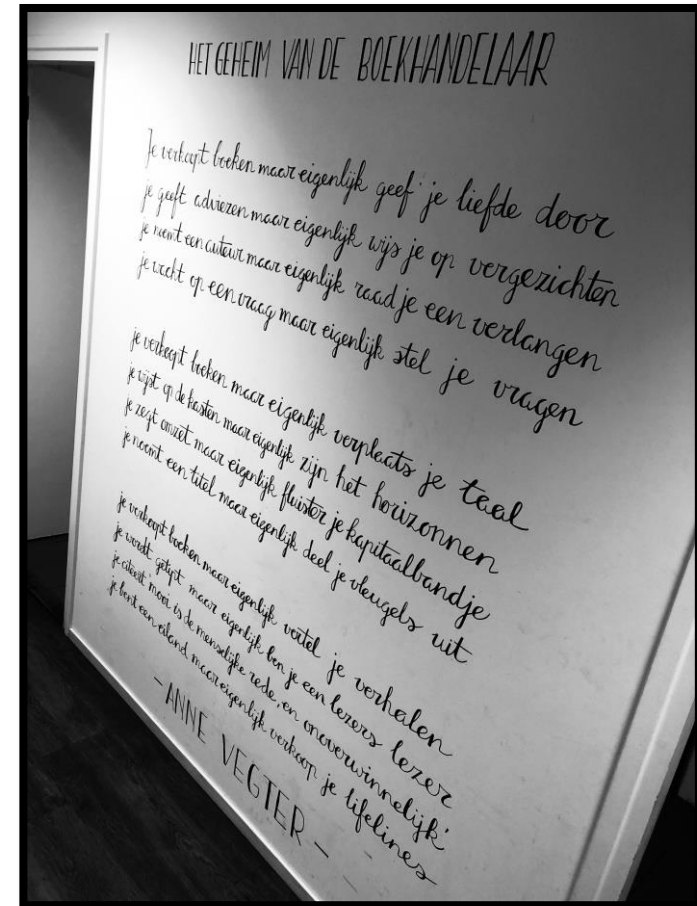 HET GEHEIM VAN DE BOEKHANDELAAR
Je verkoopt boeken maar eigenlijk geef je liefde door
je geeft adviezen maar eigenlijk wijs je op vergezichten
je noemt een auteur maar eigenlijk raad je een verlangen
je wacht op een vraag maar eigenlijk stel je vragen
je verkoopt boeken maar eigenlijk verplaats je taal
je wijst op de kasten maar eigenlijk zijn het horizonnen
je zegt omzet maar eigenlijk fluister je kapitaalbandje
je noemt een titel maar eigenlijk deel je vleugels uit
je verkoopt boeken maar eigenlijk vertel je verhalen
je wordt getipt maar eigenlijk ben je een lezers lezer
je citeert 'mooi is de menselijke rede, en onoverwinnelijk'
je bent een eiland maar eigenlijk verkoop je lifelines
- ANNE VEGTER -